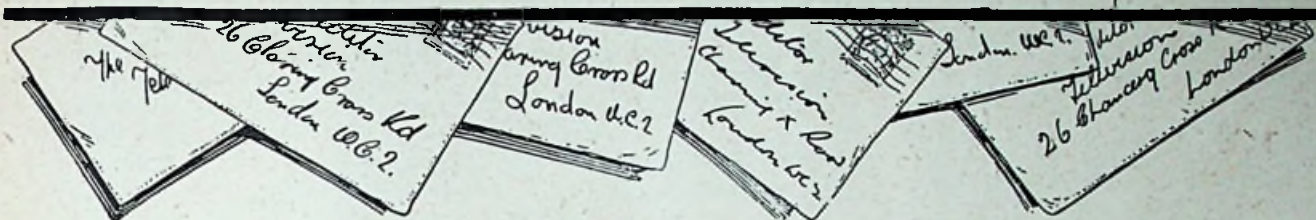 The
vision
26 Charing Cross Rd
London W.C.2.
vision
aring Cross Rd
London W.C.2
ditor
Television
Charing X Road
London WC2
London. W.C.2.
Television
26 Chancery Cross R
London